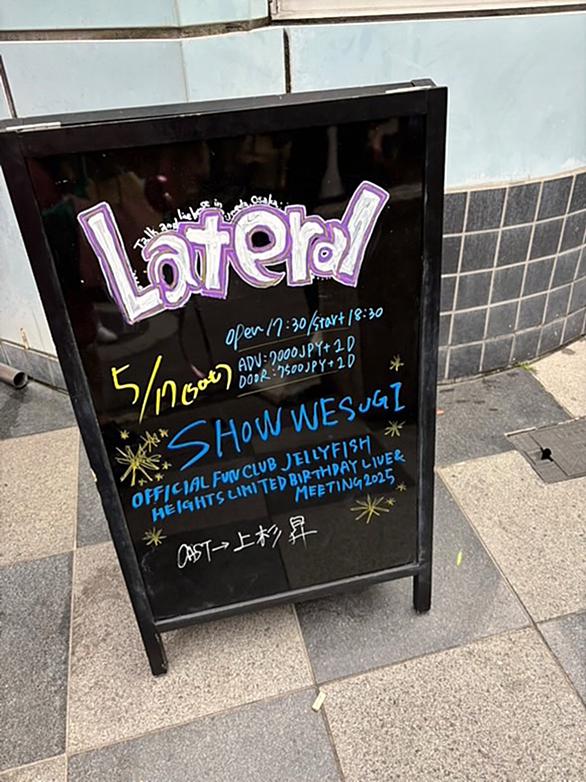 Talk and live house in Osaka
Lateral
open 17:30/start 18:30
5/17(sat)
ADV:7000JPY+1D
DOOR:7500JPY+1D
SHOW WESUGI
OFFICIAL FUN CLUB JELLYFISH
HEIGHTS LIMITED BIRTHDAY LIVE&
MEETING2025
CAST→上杉 昇